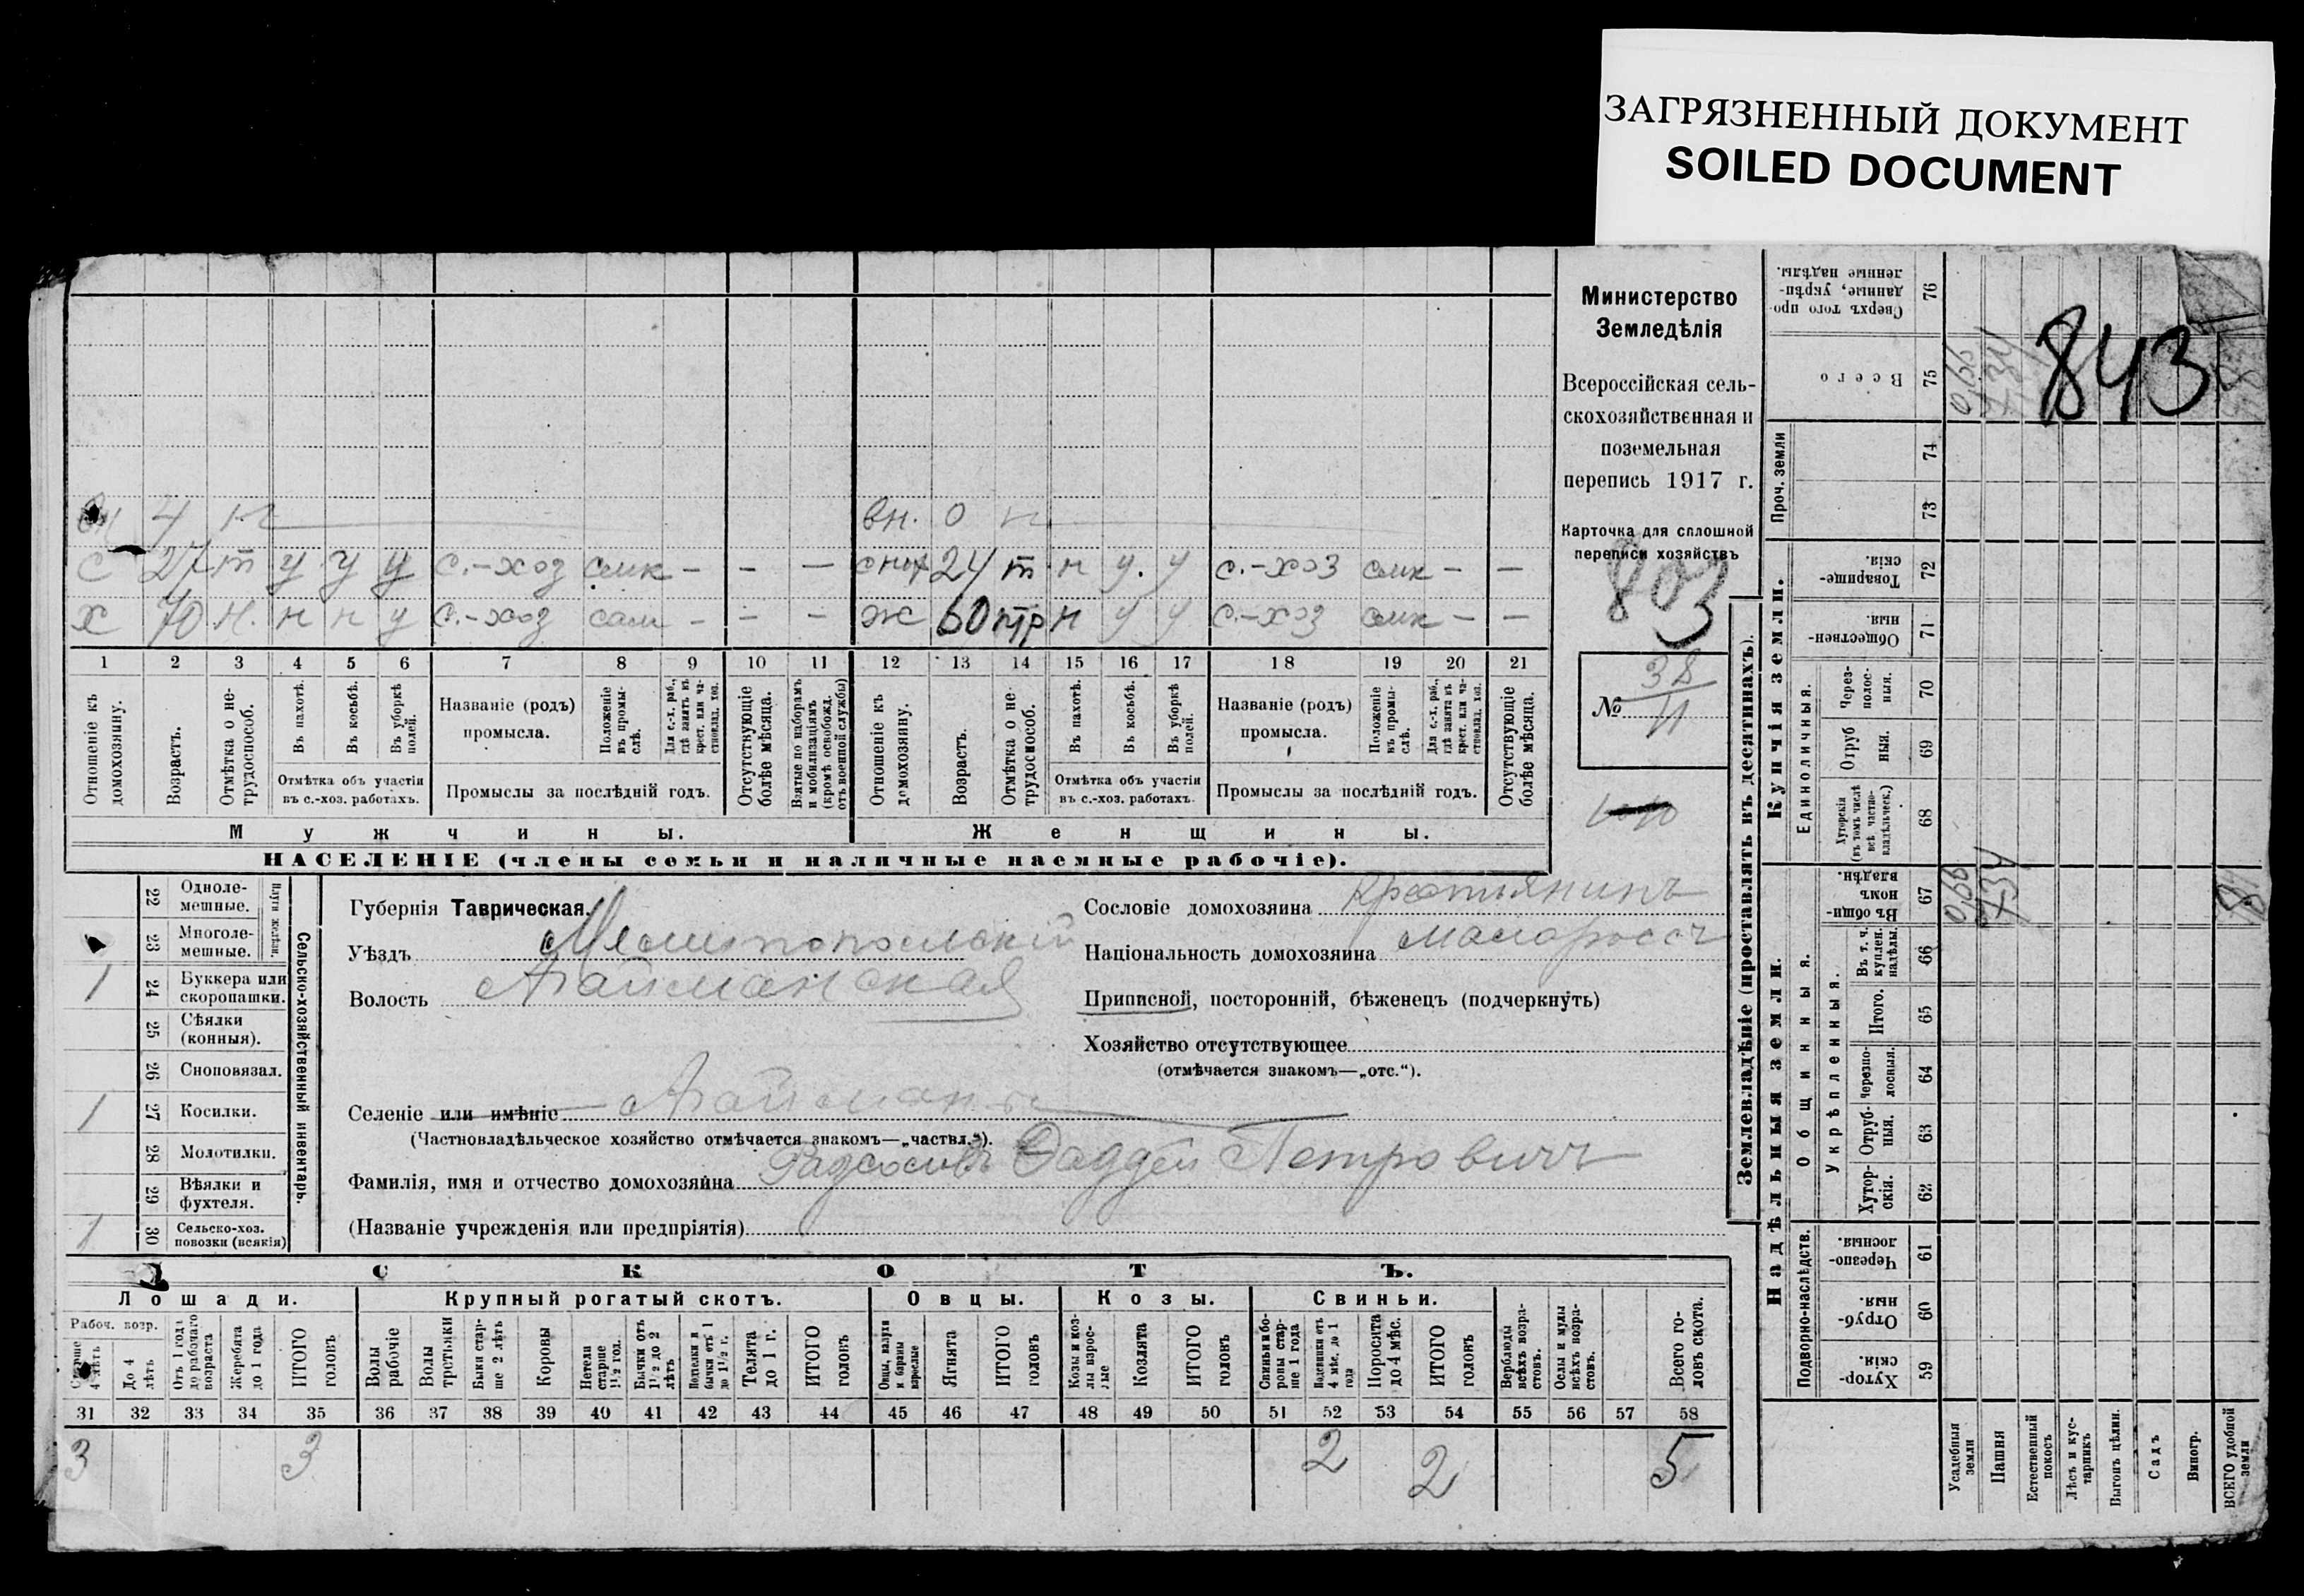 ЗАГРЯЗНЕННЫЙ ДОКУМЕНТ
SOILED DOCUMENT
843
вн 4 н вн. 0 н
с 27 т у у у с.-хоз смк - - - снох 24 т н у. у с.-хоз смк - -
х 70 н. н н у с.-хоз сам - - - ж 60 нтр н у у с.-хоз смк - -
1 2 3 4 5 6 7 8 9 10 11 12 13 14 15 16 17 18 19 20 21
Отношеніе къ домохозяину.
Возрастъ.
Отмѣтка о не-трудоспособ.
Въ пахотѣ.
Въ косьбѣ.
Въ уборкѣ полей.
Отмѣтка объ участіи
въ с.-хоз. работахъ.
Названіе (родъ)
промысла.
Положеніе въ промы-слѣ.
Для с.-х. раб., гдѣ занятъ въ крест. или ча-стновлад. хоз.
Промыслы за послѣдній годъ.
Отсутствующіе болѣе мѣсяца.
Взятые по наборамъ и мобилизаціямъ (кромѣ освобожд. отъ военной службы)
Отношеніе къ домохозяину.
Возрастъ.
Отмѣтка о не-трудоспособ.
Въ пахотѣ.
Въ косьбѣ.
Въ уборкѣ полей.
Отмѣтка объ участіи
въ с.-хоз. работахъ.
Названіе (родъ)
промысла.
Положеніе въ промы-слѣ.
Для с.-х. раб., гдѣ занята въ крест. или ча-стновлад. хоз.
Промыслы за послѣдній годъ.
Отсутствующіе болѣе мѣсяца.
Мужчины. Женщины.
НАСЕЛЕНІЕ (члены семьи и наличные наемные рабочіе).
Министерство
Земледѣлія
Всероссійская сель-
скохозяйственная и
поземельная
перепись 1917 г.
Карточка для сплошной
переписи хозяйствъ
803
№ 38
Плуги желѣзн.
22 Одноле-мешные.
23 Многоле-мешные.
1 24 Буккера или скоропашки.
25 Сѣялки (конныя).
26 Сноповязал.
1 27 Косилки.
28 Молотилки.
29 Вѣялки и фухтеля.
1 30 Сельско-хоз. повозки (всякія)
Сельско-хозяйственный инвентарь.
Губернія Таврическая.
Уѣздъ Мелитопольскій
Волость Агайманская
Сословіе домохозяина Крестьянинъ
Національность домохозяина малороссъ
Приписной, посторонній, бѣженецъ (подчеркнуть)
Хозяйство отсутствующее
(отмѣчается знакомъ—„отс.“).
Селеніе или имѣніе Агайманы
(Частновладѣльческое хозяйство отмѣчается знакомъ—„частвл.“).
Фамилія, имя и отчество домохозяина Фаддей Петровичъ
(Названіе учрежденія или предпріятія)
СКОТЪ.
Лошади. Крупный рогатый скотъ. Овцы. Козы. Свиньи.
Рабоч. возр.
Старше 4 лѣтъ
До 4 лѣтъ
Отъ 1 года до рабочаго возраста
Жеребята до 1 года
ИТОГО головъ
Волы рабочіе
Волы третьяки
Быки стар-ше 2 лѣтъ
Коровы
Нетели старше 1½ год.
Бычки отъ 1½ до 2 лѣтъ
Подтелки и бычки отъ 1 до 1½ г.
Телята до 1 г.
ИТОГО головъ
Овцы, валухи и бараны взрослые
Ягнята
ИТОГО головъ
Козы и коз-лы взрос-лые
Козлята
ИТОГО головъ
Свиньи и бо-ровы стар-ше 1 года
Подсвинки отъ 4 мѣс. до 1 года
Поросята до 4 мѣс.
ИТОГО головъ
Верблюды всѣхъ возра-стовъ.
Ослы и мулы всѣхъ возра-стовъ.
Всего го-ловъ скота.
31 32 33 34 35 36 37 38 39 40 41 42 43 44 45 46 47 48 49 50 51 52 53 54 55 56 57 58
3 3 2 2 5
Землевладѣніе (проставлять въ десятинахъ).
Купчія земли.
Надѣльныя земли.
Сверхъ того про-данные, укрѣп-ленные надѣлы. 76
Всего 75
Проч. земли 74 73
Товарище-скія. 72
Обществен-ныя. 71
Единоличныя.
Через-полос-ныя. 70
Отруб-ныя. 69
Хуторскія (въ томъ числѣ всѣ частно-владѣльческ.) 68
Общинныя.
Въ общин-номъ владѣн. 67
Укрѣпленныя.
Въ т. ч. куплен. надѣлы. 66
Итого. 65
черезпо-лосныя. 64
Отруб-ныя. 63
Хутор-скія. 62
Подворно-наслѣдств.
Черезпо-лосныя. 61
Отруб-ныя. 60
Хутор-скія. 59
Усадебныя земли
Пашня
Естественный покосъ
Лѣсъ и кус-тарникъ
Выгонъ цѣлин.
Садъ
Виногр.
ВСЕГО удобной земли